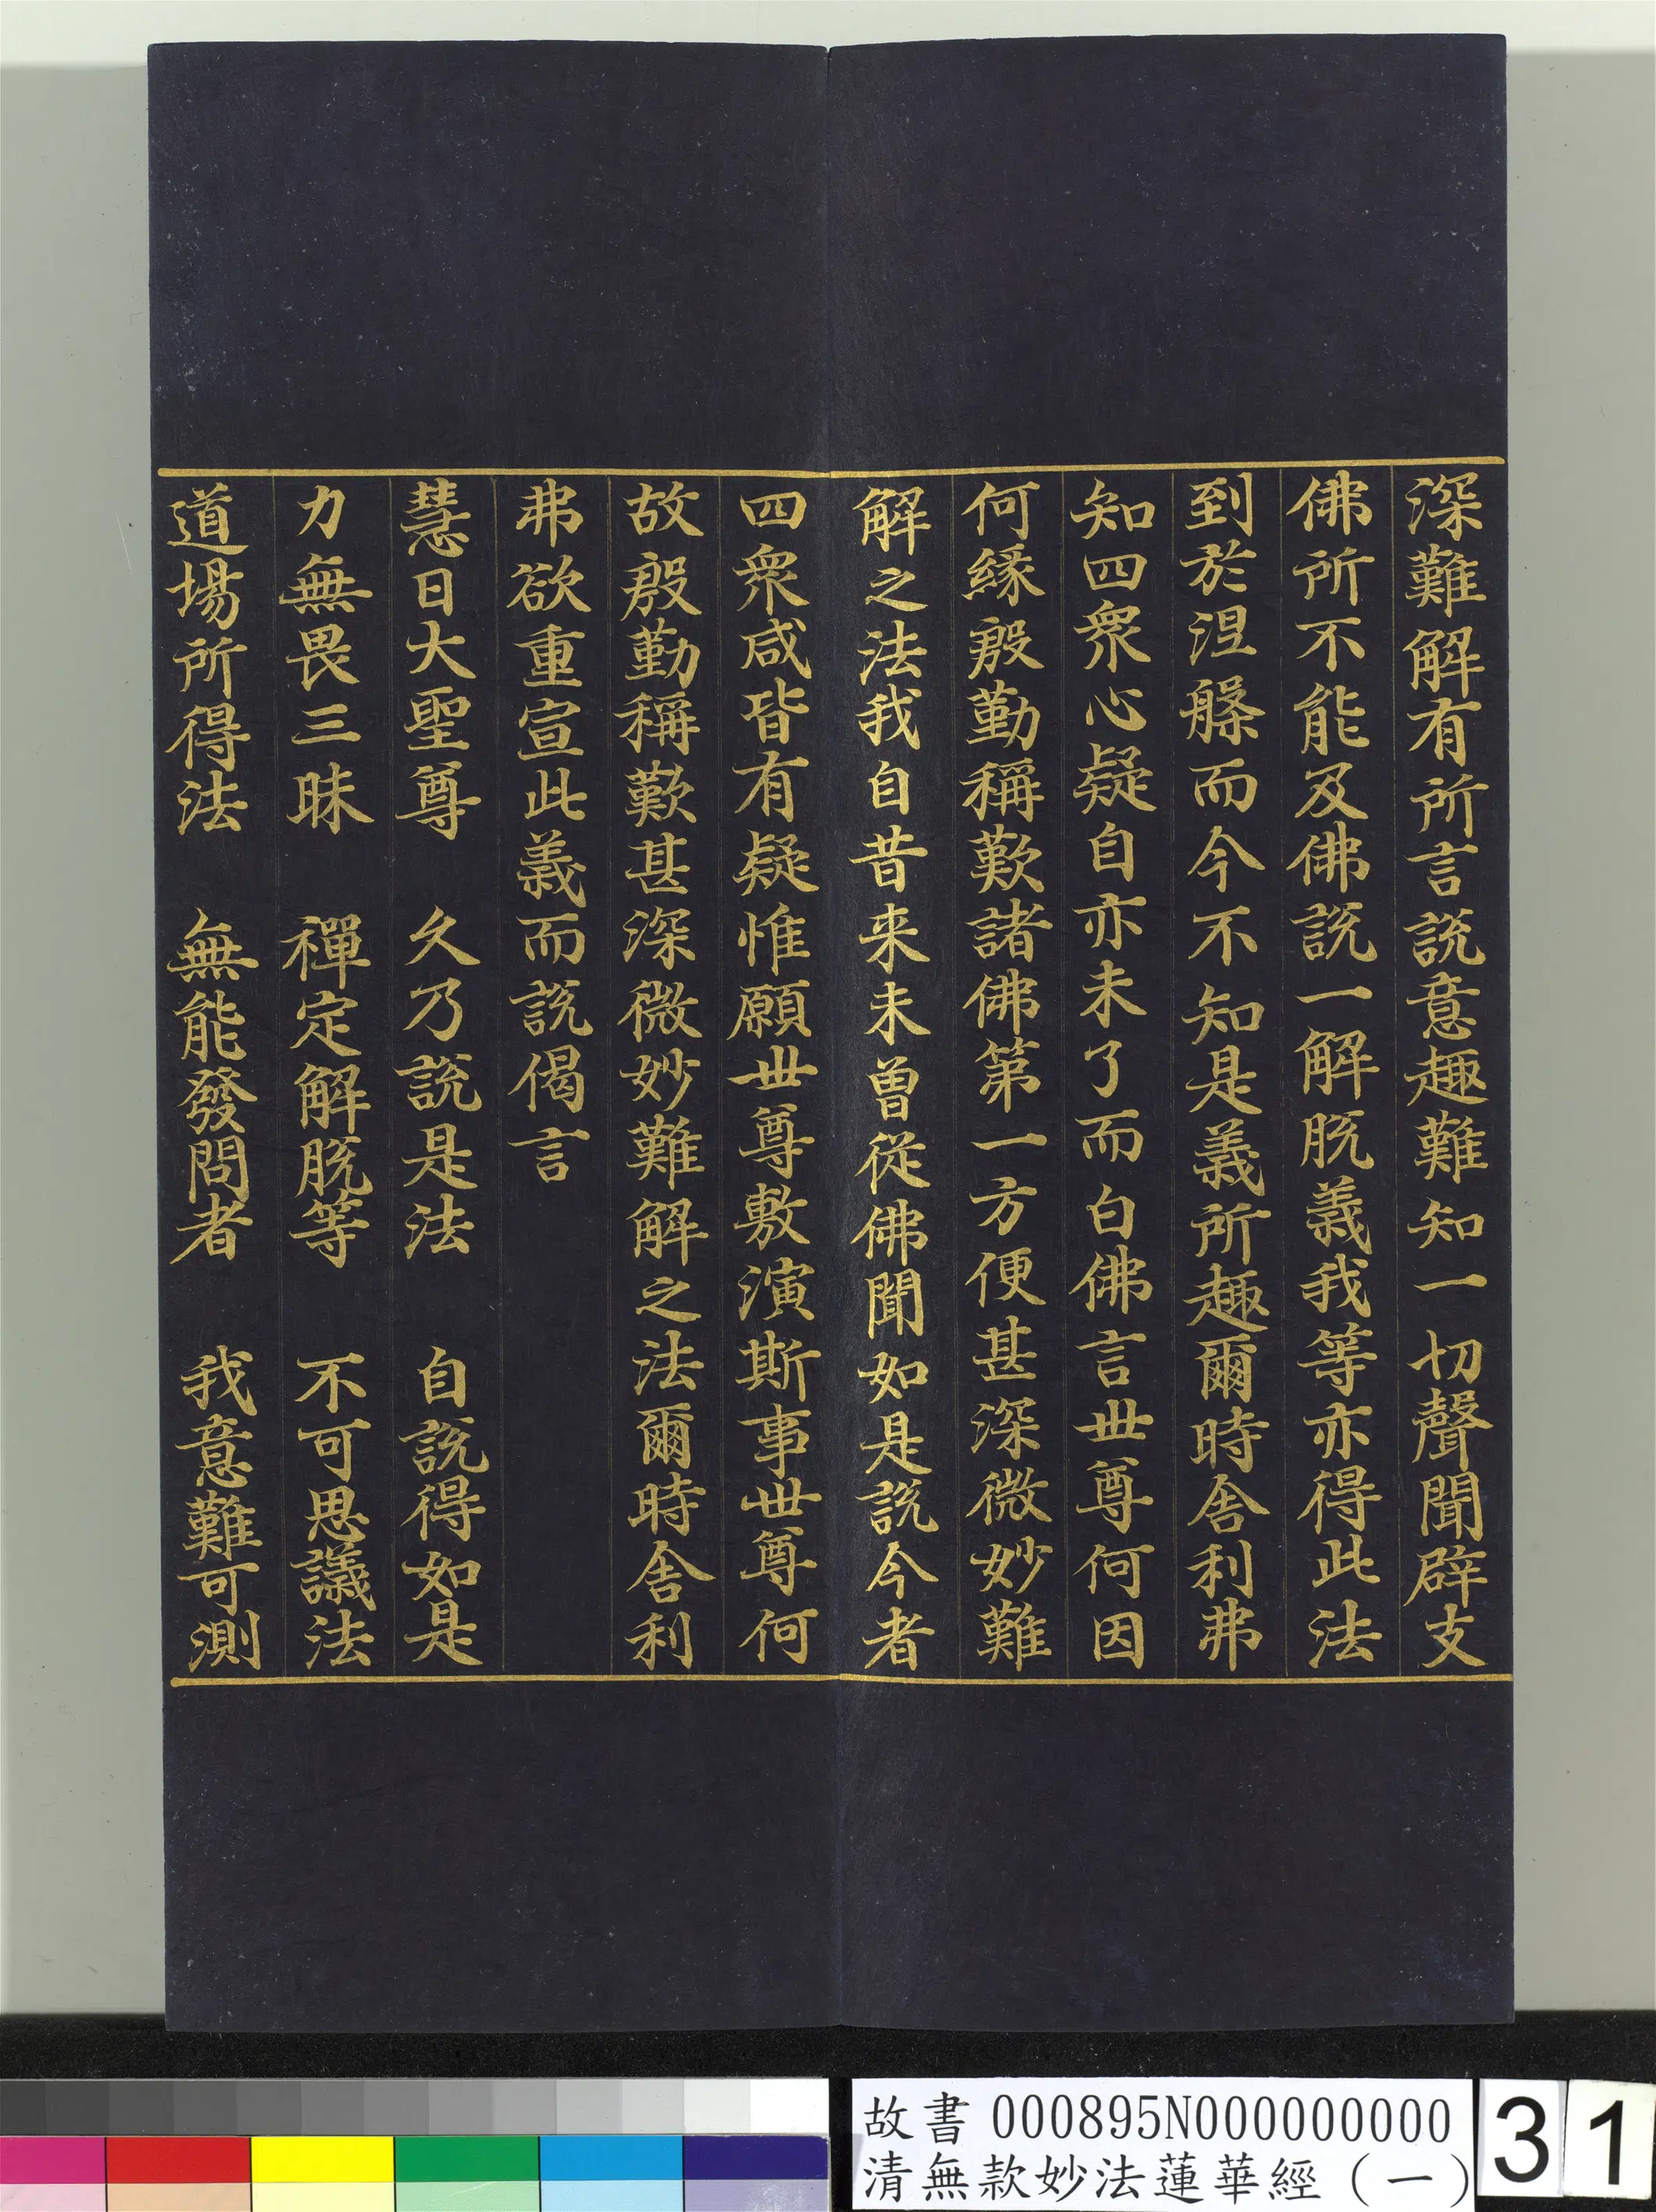 深難解有所言說意趣難知一切聲聞辟支
佛所不能及佛說一解脫義我等亦得此法
到於涅槃而今不知是義所趣爾時舍利弗
知四衆心疑自亦未了而白佛言世尊何因
何緣殷勤稱歎諸佛第一方便甚深微妙難
解之法我自昔来未曾從佛聞如是說今者
四衆咸皆有疑惟願世尊敷演斯事世尊何
故殷勤稱歎甚深微妙難解之法爾時舍利
弗欲重宣此義而說偈言
慧日大聖尊　久乃說是法　自說得如是
力無畏三昧　禪定解脫等　不可思議法
道場所得法　無能發問者　我意難可測
故書 000895N000000000
清無款妙法蓮華經（一）
31